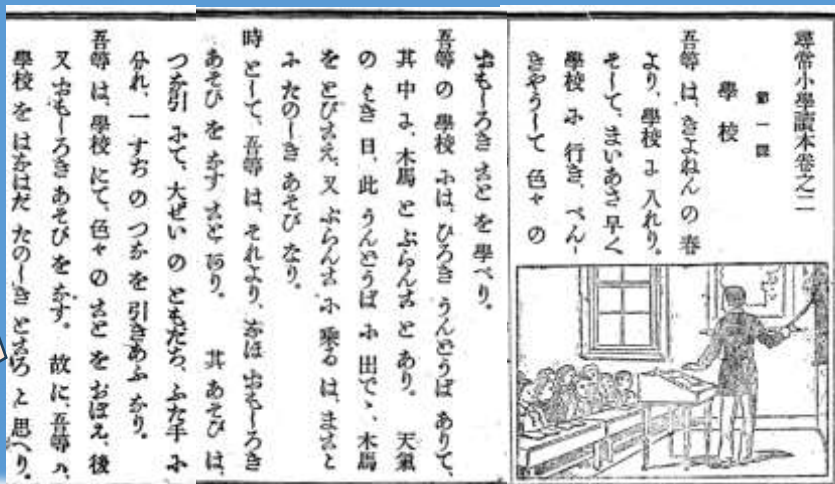 尋常小學讀本卷之二
第一課
學校
吾等は、きよねんの春
より、學校に入れり。
そして、まいあさ早く
學校に行き、べん-
きやうして色々の
おもしろきことを學べり。
吾等の學校には、ひろきうんどうばありて、
其中に、木馬とぶらんことあり。 天氣
のよき日、此うんどうばに出でゝ、木馬
をとびこえ、又ぶらんこに乘るは、まこと
にたのしきあそびなり。
時として、吾等は、それより、なほおもしろき
あそびをなすことあり。 其あそびは、
つな引にて、大ぜいのともだち、ふた手に
分れ、一すぢのつなを引きあふなり。
吾等は、學校にて、色々のことをおぼえ、後
又おもしろきあそびをなす。故に、吾等ハ、
學校をはなはだたのしきところと思へり。